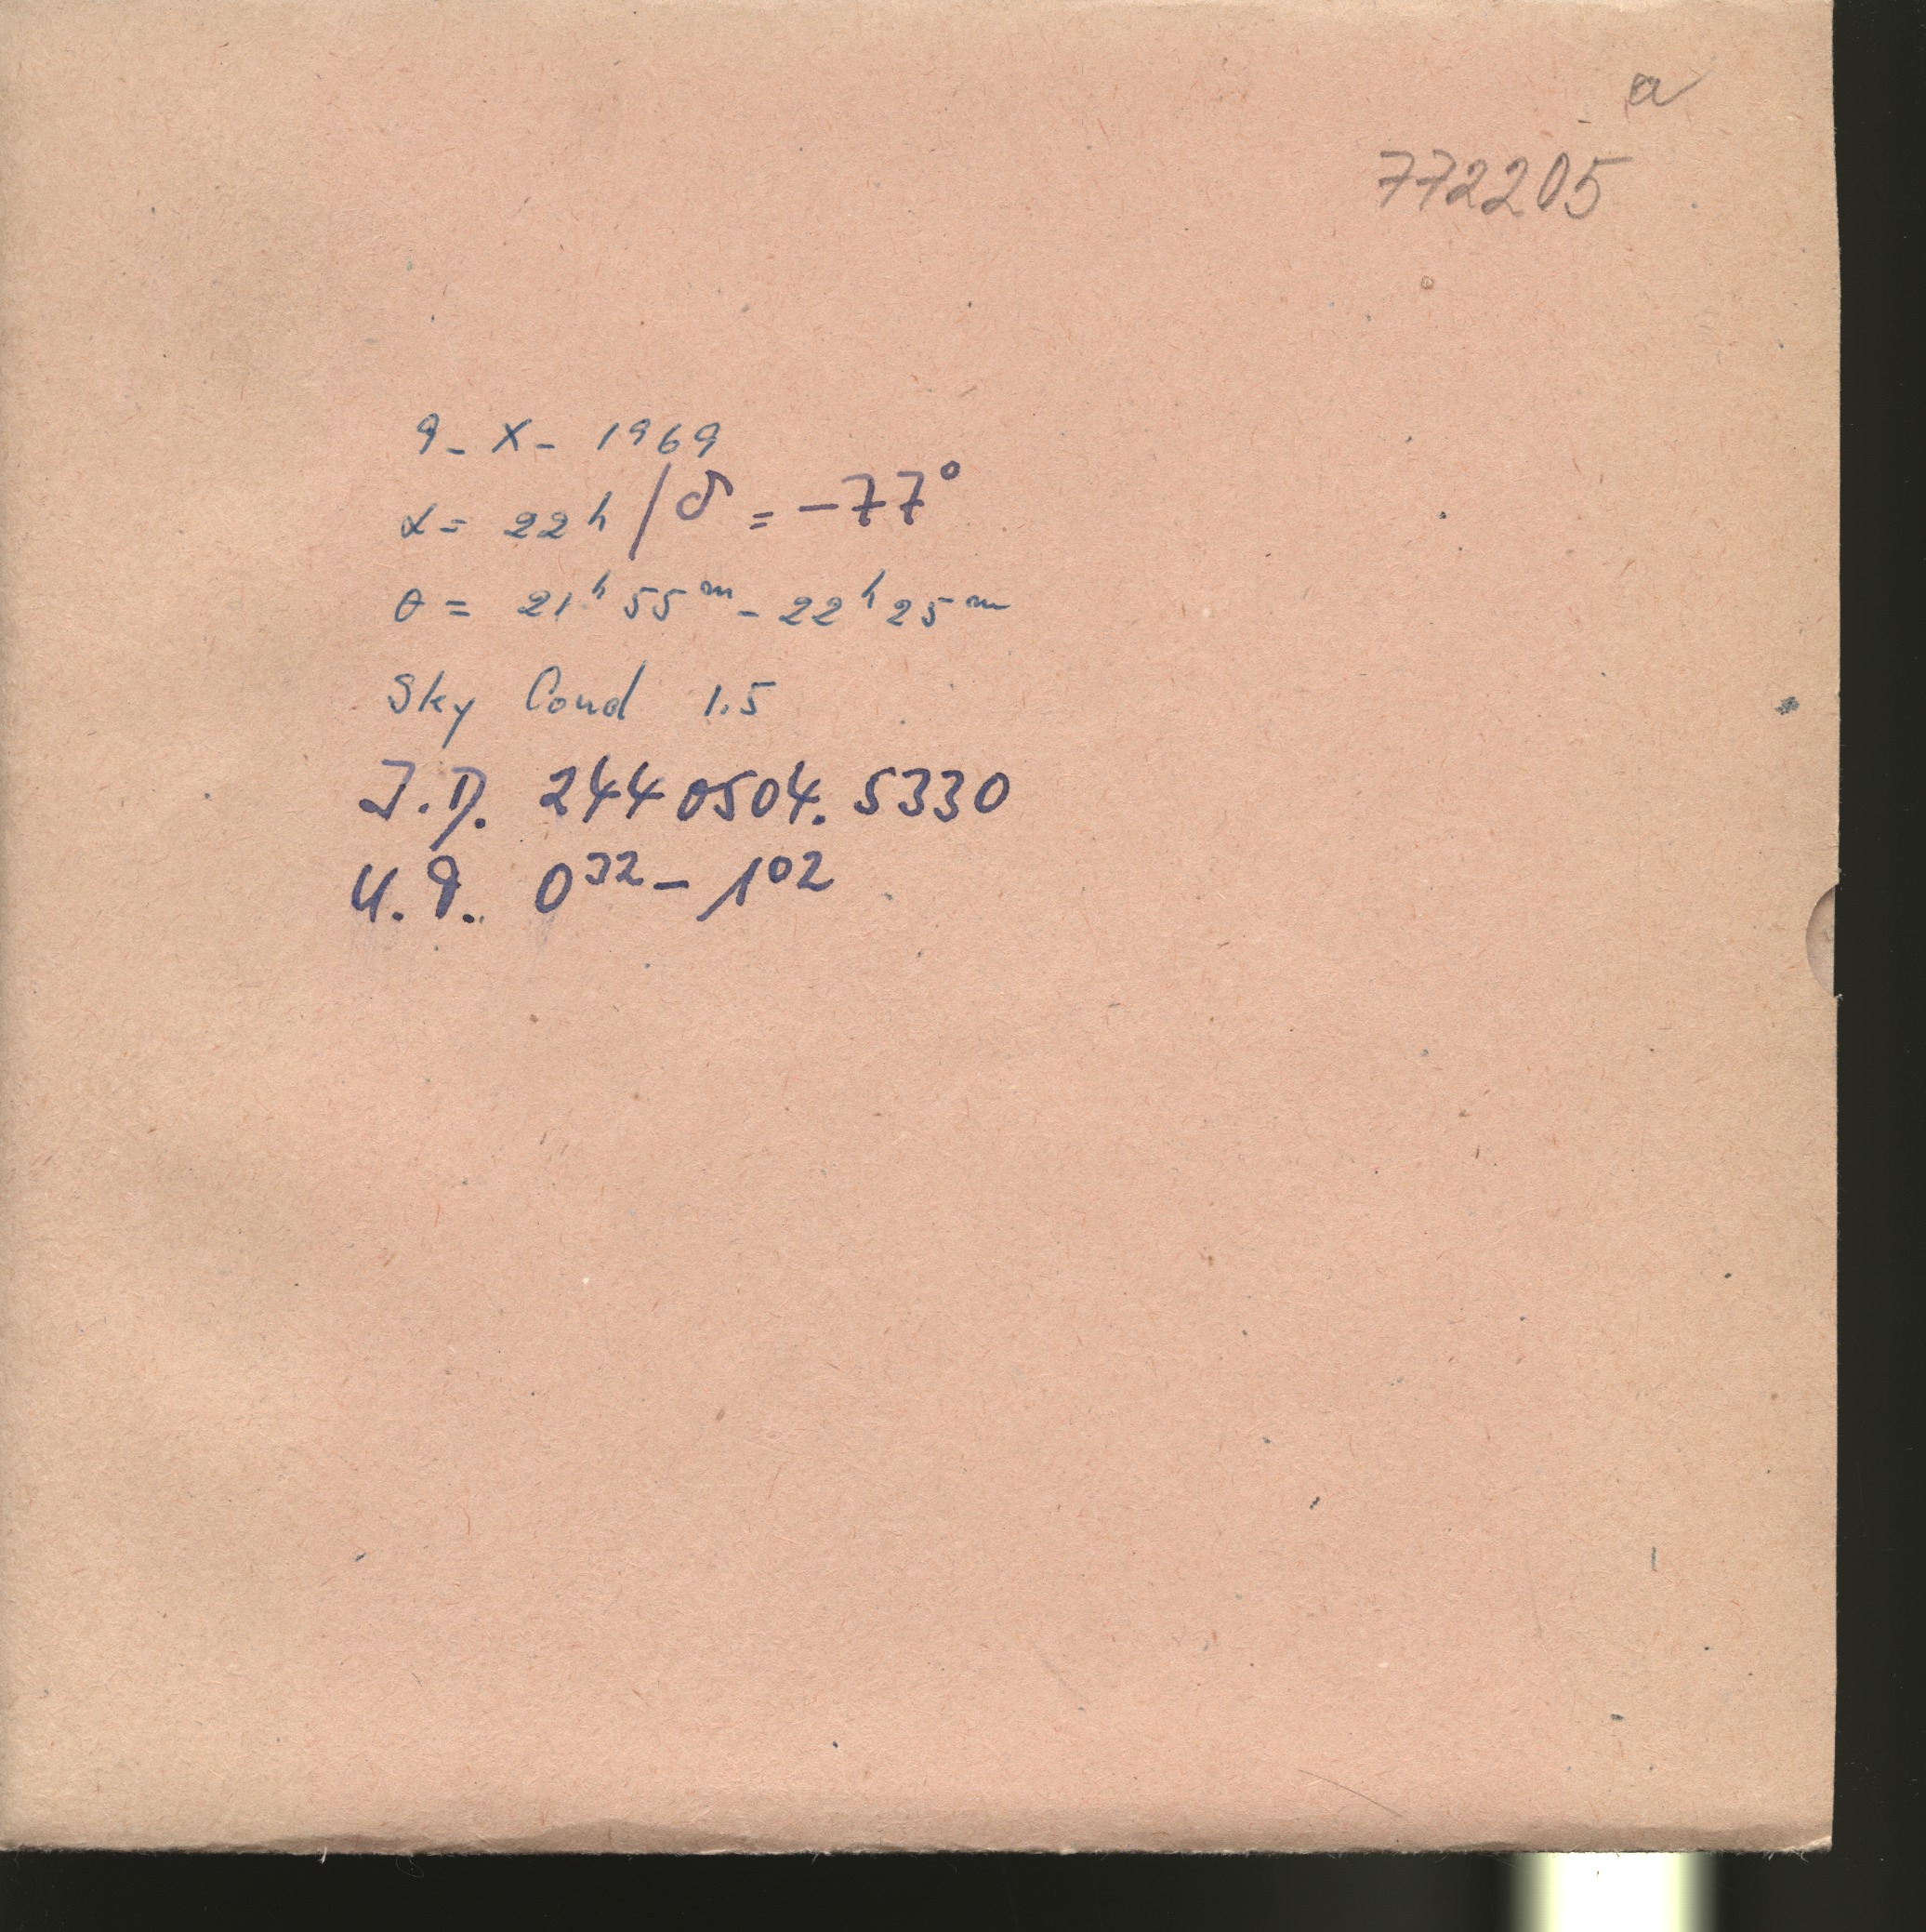 a
772205
9-X-1969
α = 22h / δ = -77°
θ = 21h 55m - 22h 25m
Sky Cond 1.5
J.D. 2440504.5330
U.T. 0 32 - 1 02